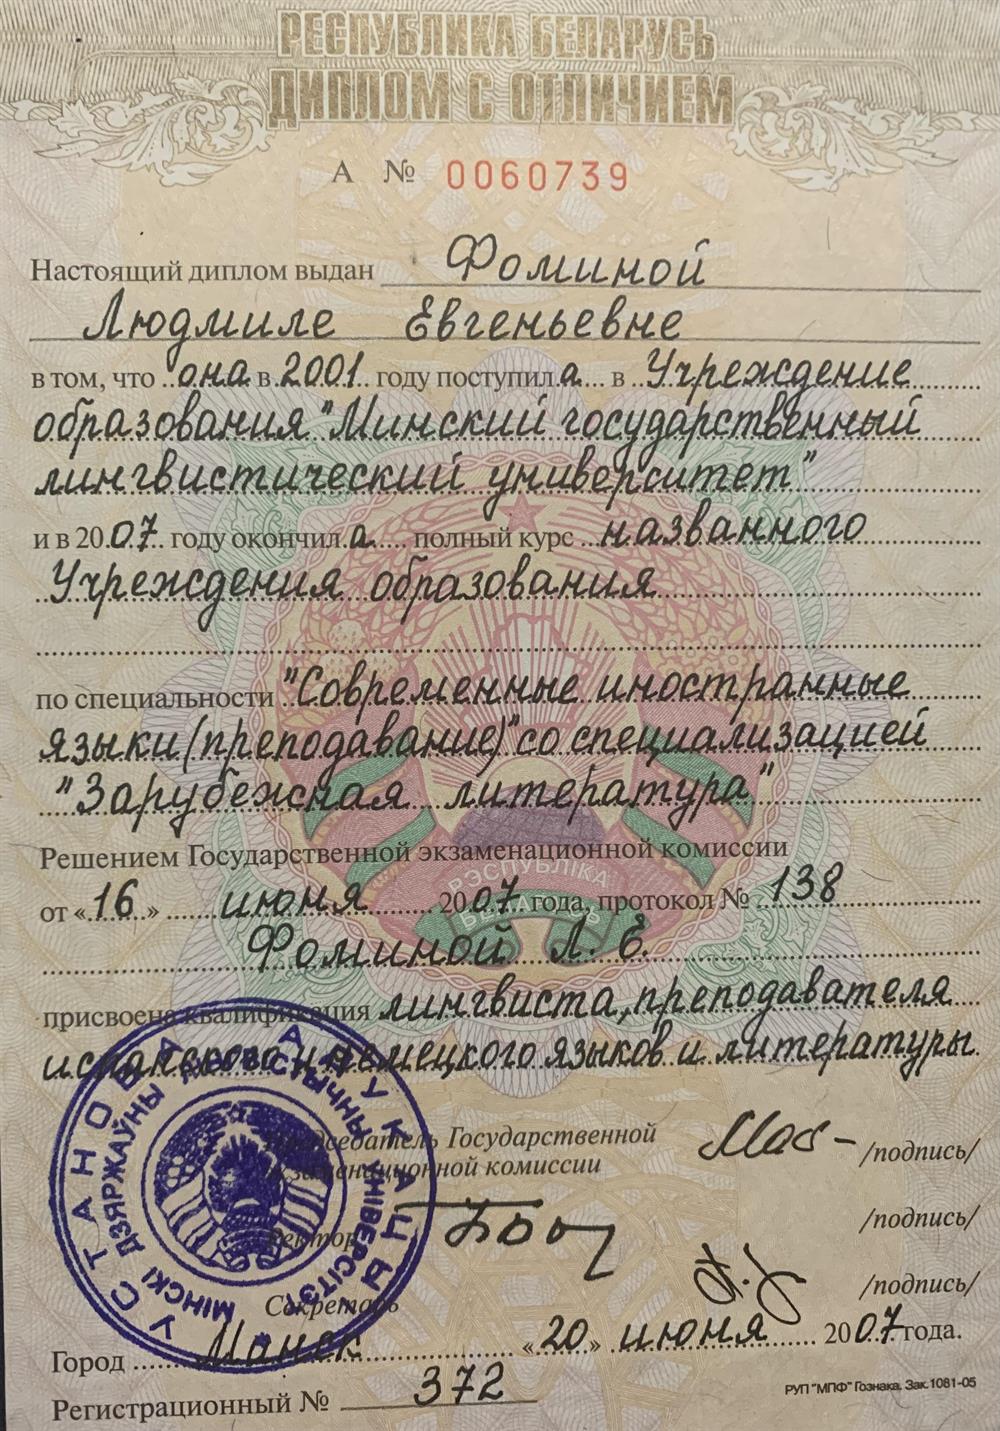 РЕСПУБЛИКА БЕЛАРУСЬ
ДИПЛОМ С ОТЛИЧИЕМ
А № 0060739
Настоящий диплом выдан Фоминой
Людмиле Евгеньевне
в том, что она в 2001 году поступила в Учреждение
образования "Минский государственный
лингвистический университет"
и в 2007 году окончила полный курс названного
Учреждения образования
по специальности "Современные иностранные
языки (преподавание)" со специализацией
"Зарубежная литература"
Решением Государственной экзаменационной комиссии
от «16» июня 2007 года, протокол № 138
Фоминой Л. Е.
присвоена квалификация лингвиста, преподавателя
испанского и немецкого языков и литературы.
Председатель Государственной
экзаменационной комиссии /подпись/
Ректор /подпись/
Секретарь /подпись/
Город Минск «20» июня 2007 года.
Регистрационный № 372
РУП "МПФ" Гознака. Зак.1081-05
УСТАНОВА АДУКАЦЫІ
МІНСКІ ДЗЯРЖАЎНЫ ЛІНГВІСТЫЧНЫ УНІВЕРСІТЭТ
РЭСПУБЛІКА
БЕЛАРУСЬ